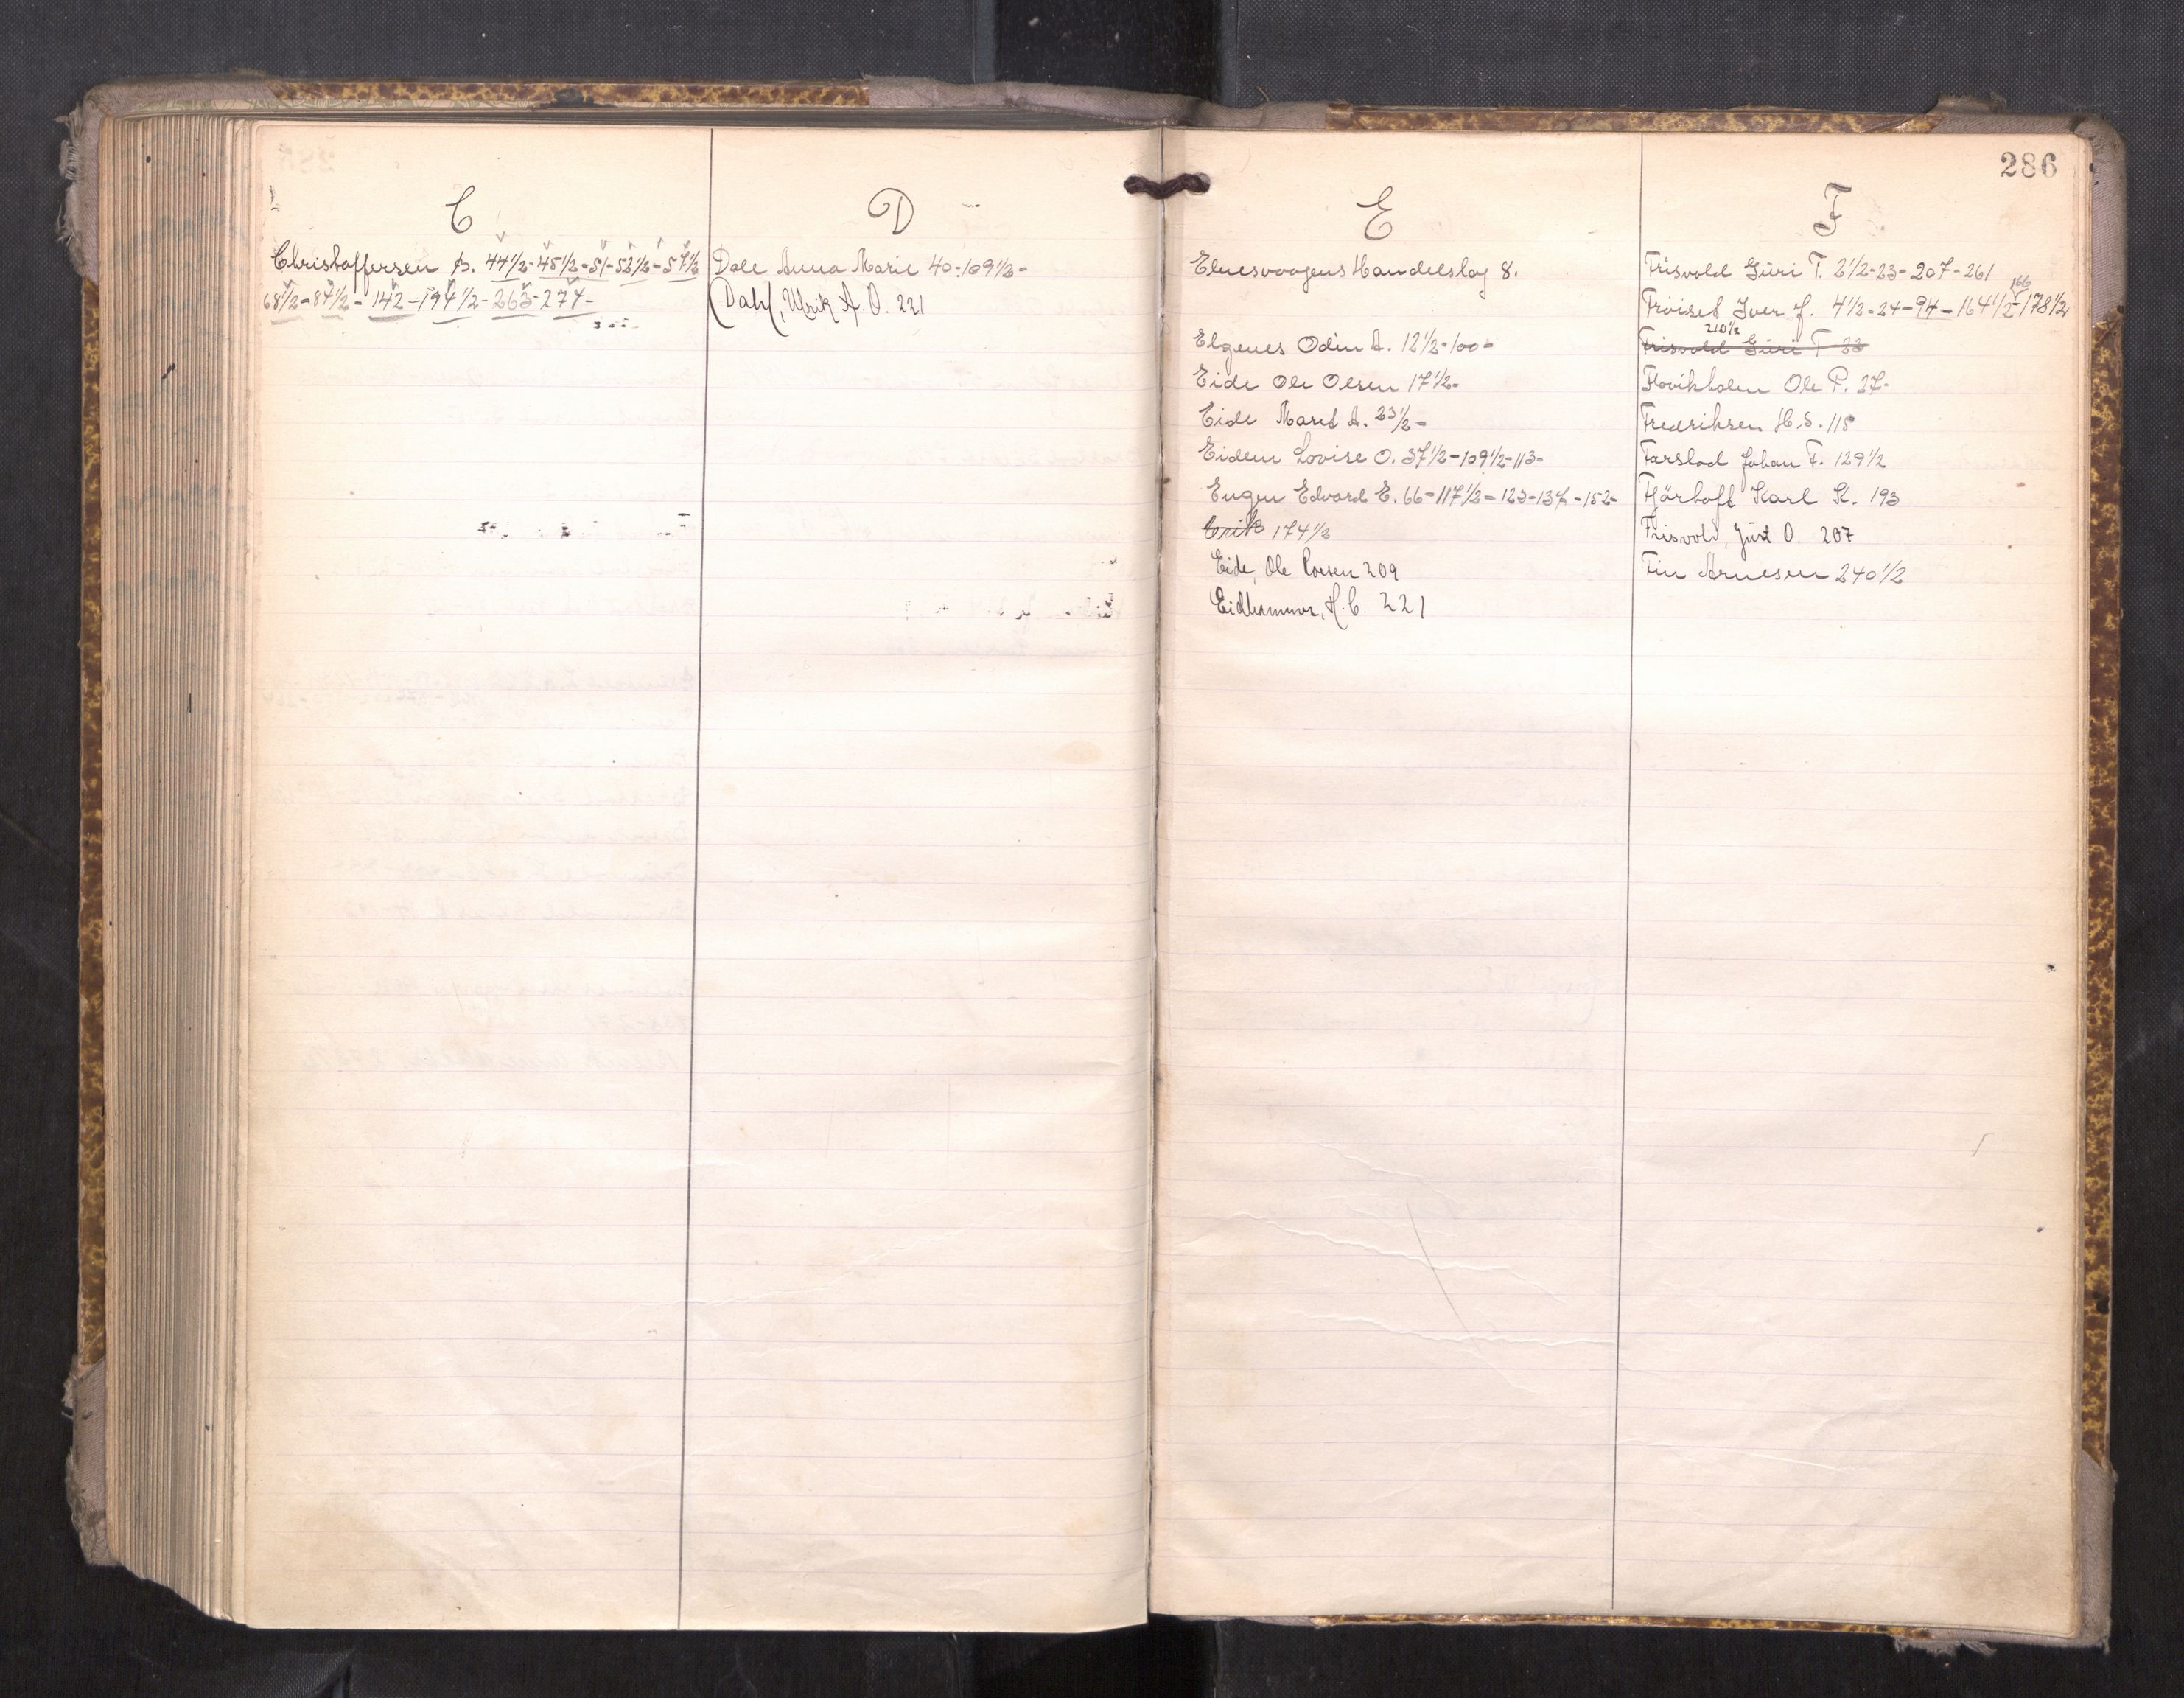 C
Christoffersen A. 44 1/2 - 45 1/2 - 51 - 52 1/2 - 57 1/2
68 1/2 - 87 1/2 - 142 - 194 1/2 - 263 - 274 -
D
Dale Anna Marie 40 - 109 1/2 -
Dahl, Ulrik A. O. 221
286
E
Elnesvaagens Handelslag 8.
Elgenes Odin A. 12 1/2 - 100 -
Eide Ole Olsen 17 1/2 -
Eide Marit A. 23 1/2 -
Eidem Lovise O. 37 1/2 - 109 1/2 - 113 -
Eugen Edvard E. 66 - 117 1/2 - 123 - 137 - 152 -
Erik 174 1/2
Eide, Ole Larsen 209
Eidhammer, H. C. 221
F
Frisvold Guri T. 2 1/2 - 23 - 207 - 261
166
Fröiset Iver J. 4 1/2 - 24 - 94 - 164 1/2 - 178 1/2
210 1/2
Frisvold Guri T 23
Flovikholen Ole P. 27 -
Fredriksen H. S. 118
Farstad Johan F. 129 1/2
Fjörtoft Karl K. 193
Frisvold, Just O. 207
Fin Arnesen 240 1/2